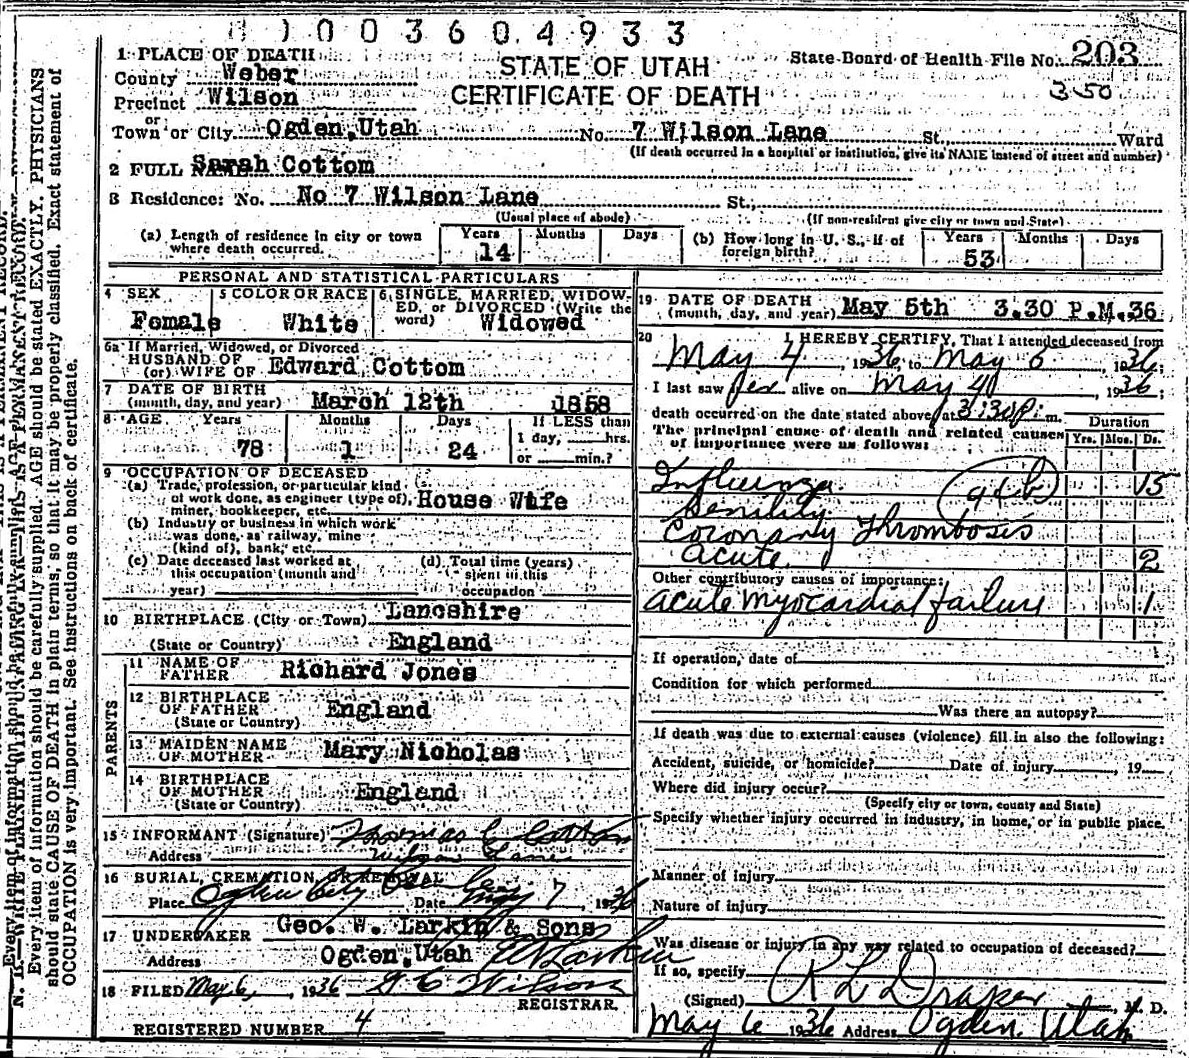 0 1 0 0 3 6 0 4 9 3 3
1 PLACE OF DEATH
County Weber
Precinct Wilson
or
Town or City Ogden, Utah No. 7 Wilson Lane St., Ward
STATE OF UTAH
CERTIFICATE OF DEATH
State Board of Health File No. 203
350
(If death occurred in a hospital or institution, give its NAME instead of street and number)
2 FULL NAME Sarah Cottom
3 Residence: No. No 7 Wilson Lane St.,
(Usual place of abode) (If non-resident give city or town and State)
(a) Length of residence in city or town where death occurred. Years 14 Months Days
(b) How long in U. S., if of foreign birth? Years 53 Months Days
PERSONAL AND STATISTICAL PARTICULARS
4 SEX Female
5 COLOR OR RACE White
6 SINGLE, MARRIED, WIDOWED, or DIVORCED (Write the word) Widowed
6a If Married, Widowed, or Divorced
HUSBAND OF
(or) WIFE OF Edward Cottom
7 DATE OF BIRTH
(month, day, and year) March 12th 1858
8 AGE Years Months Days If LESS than
78 1 24 1 day, hrs.
or min.?
9 OCCUPATION OF DECEASED
(a) Trade, profession, or particular kind
of work done, as engineer (type of), House Wife
miner, bookkeeper, etc.
(b) Industry or business in which work
was done, as railway, mine
(kind of), bank, etc.
(c) Date deceased last worked at
this occupation (month and
year)
(d) Total time (years)
spent in this
occupation
10 BIRTHPLACE (City or Town) Lancshire
(State or Country) England
PARENTS
11 NAME OF
FATHER Richard Jones
12 BIRTHPLACE
OF FATHER England
(State or Country)
13 MAIDEN NAME
OF MOTHER Mary Nicholas
14 BIRTHPLACE
OF MOTHER England
(State or Country)
15 INFORMANT (Signature) Thomas E Cottom
Address Wilson Lane
16 BURIAL, CREMATION, OR REMOVAL
Place Ogden City Date May 7, 1936
17 UNDERTAKER Geo. W. Larkin & Sons
Address Ogden, Utah
18 FILED May 6, 1936 G C Wilson
REGISTRAR.
REGISTERED NUMBER 4
19 DATE OF DEATH
(month, day, and year) May 5th 3.30 P.M. 36
20 I HEREBY CERTIFY, That I attended deceased from
May 4, 1936, to May 5, 1936;
I last saw her alive on May 4, 1936;
death occurred on the date stated above, at 3:30 P. m.
The principal cause of death and related causes
of importance were as follows:
Duration
Yrs. Mos. Ds.
Influenza 15
94b
Senility
Coronary Thrombosis
acute 2
Other contributory causes of importance:
acute myocardial failure 1
If operation, date of
Condition for which performed
Was there an autopsy?
If death was due to external causes (violence) fill in also the following:
Accident, suicide, or homicide? Date of injury , 19
Where did injury occur?
(Specify city or town, county and State)
Specify whether injury occurred in industry, in home, or in public place.
Manner of injury
Nature of injury
Was disease or injury in any way related to occupation of deceased?
If so, specify
(Signed) R L Draper M. D.
May 6 1936 Address Ogden Utah
Every item of information should be carefully supplied. AGE should be stated EXACTLY. PHYSICIANS
should state CAUSE OF DEATH in plain terms, so that it may be properly classified. Exact statement of
OCCUPATION is very important. See instructions on back of certificate.